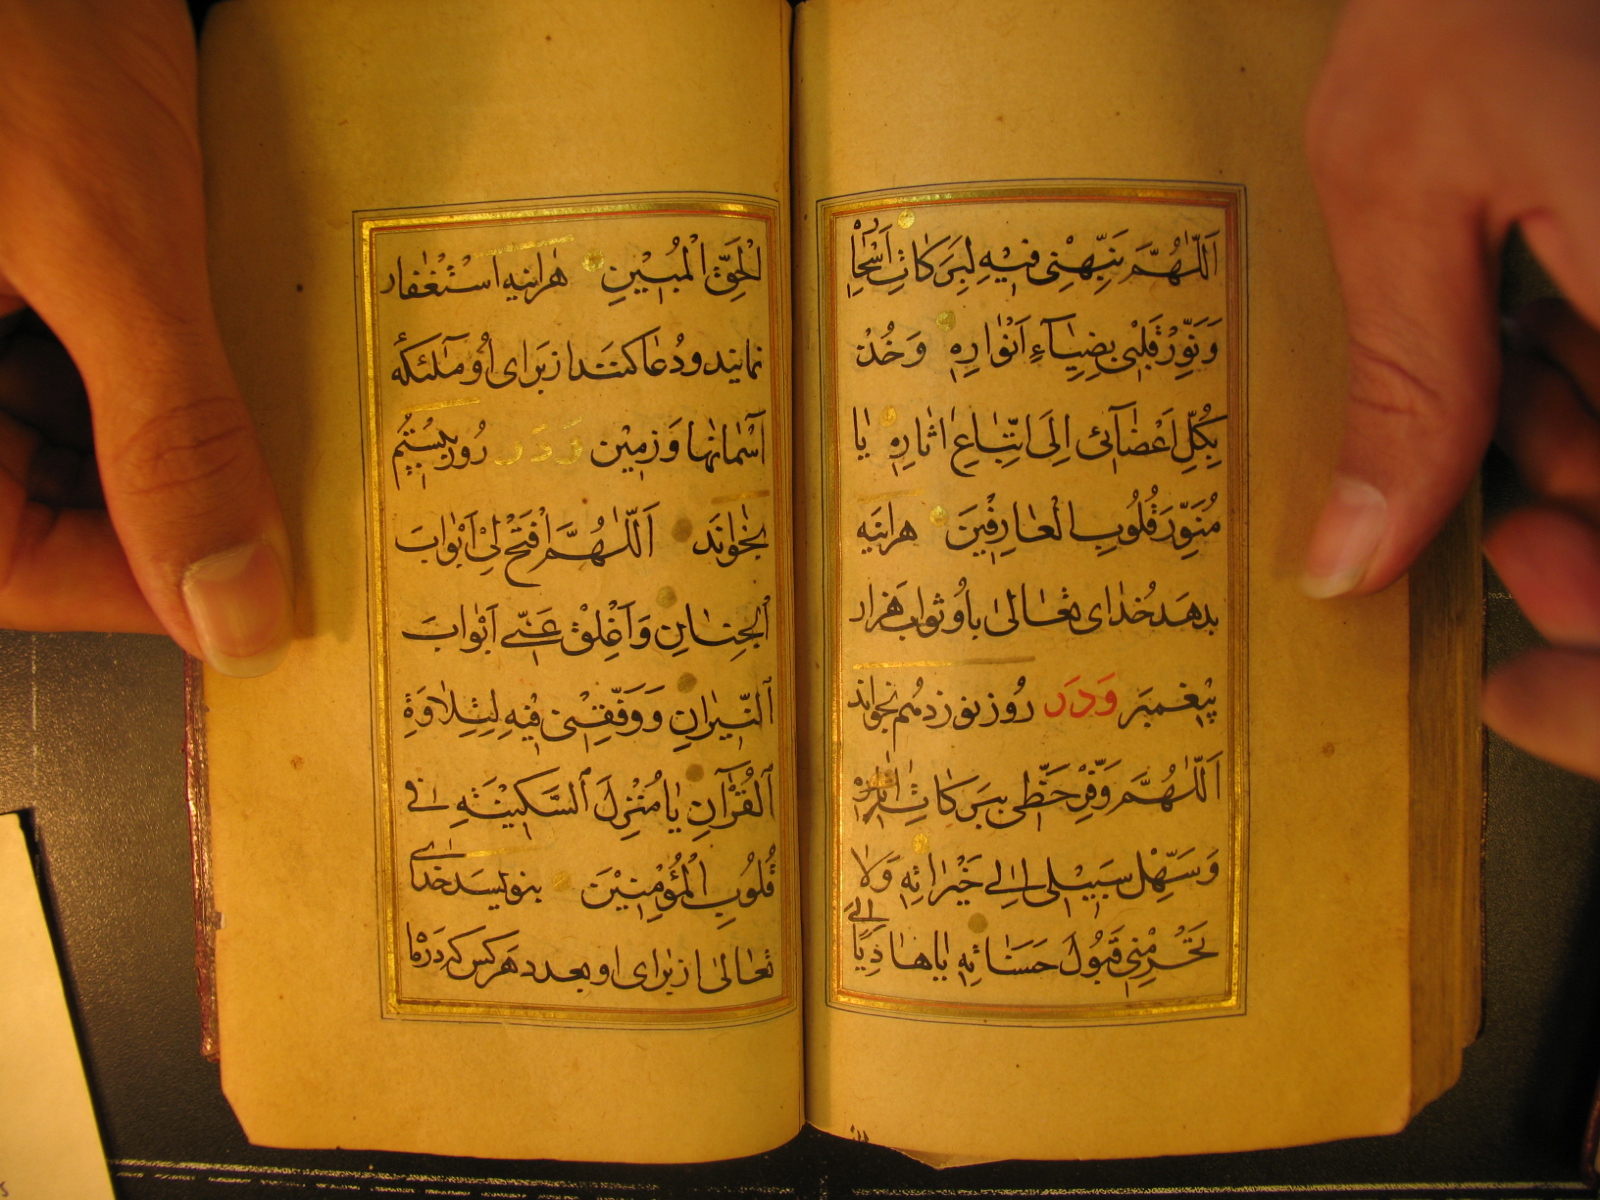 اَللّٰهُمَّ نَبِّهْنِی فِیْهِ لِبَرَکَاتِ اَسْحَارِهٖ
وَنَوِّرْ قَلْبِی بِضِیَآءِ اَنْوَارِهٖ وَخُذْ
بِکُلِّ اَعْضَآئی اِلَی اتِّبَاعِ اٰثَارِهٖ یَا
مُنَوِّرَ قُلُوبِ الْعَارِفِیْنَ هراینَه
بدهَد خُدای تعَالیٰ بااُو ثواب هَزار
پیْغمبَر وَدَر رُوز نوزدهُم بخوانَد
اَللّٰهُمَّ وَفِّرْ حَظِّی بِبَرَکَاتِهٖ
وَسَهِّلْ سَبِیْلِی اِلیٰ خَیْرَاتِهٖ وَلَا
تَحْرِمْنِی قَبُوْلَ حَسَنَاتِهٖ یَا هَادِیًا اِلَی
الْحَقِّ الْمُبِیْنِ هراینَه اسْتغْفار
نمایند ودُعا کنَند ازبَرای اُو مَلٰٓئکَهٔ
آسْمانها وَزمیْن وَدَر رُوز بیسْتُم
بخوانَد اَللّٰهُمَّ افْتَحْ لِیْ اَبْوَابَ
الْجِنَانِ وَاَغْلِقْ عَنِّی اَبْوَابَ
النِّیرَانِ وَوَفِّقْنِی فِیْهِ لِتِلَاوَةِ
الْقُرْآنِ یَا مُنْزِلَ السَّکِیْنَةِ فی
قُلُوبِ الْمُؤْمِنِیْنَ بنویسَد خدای
تعَالیٰ ازبرَای او بعدد هَرکس کهٔ دَرْ ما